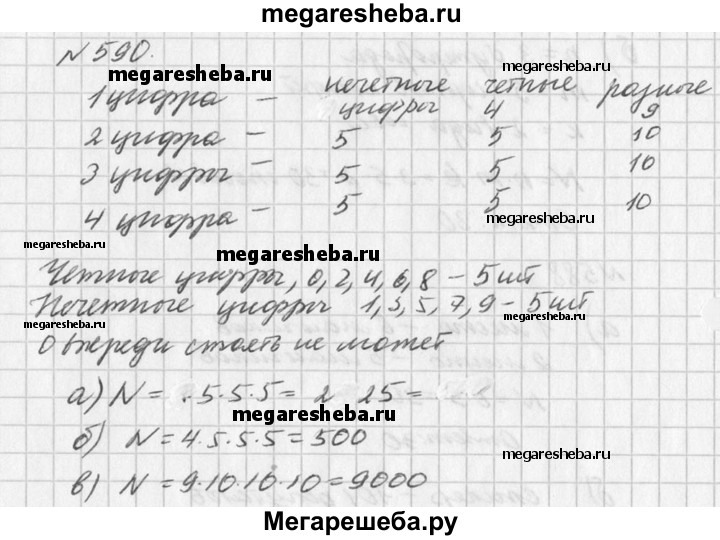 megaresheba.ru
N 590.
megaresheba.ru
megaresheba.ru
нечетные четные разные
1 цифра – цифры 4 9
2 цифра – 5 5 10
3 цифры – 5 5 10
4 цифра – 5 5 10
megaresheba.ru
megaresheba.ru
megaresheba.ru
Четные цифры, 0, 2, 4, 6, 8 – 5 шт
Нечетные цифры 1, 3, 5, 7, 9 – 5 шт
megaresheba.ru
megaresheba.ru
0 впереди стоять не может
а) N = .5·5·5 = 2 25 =
megaresheba.ru
б) N = 4·5·5·5 = 500
megaresheba.ru
в) N = 9·10·10·10 = 9000
megaresheba.ru
Мегарешеба.ру